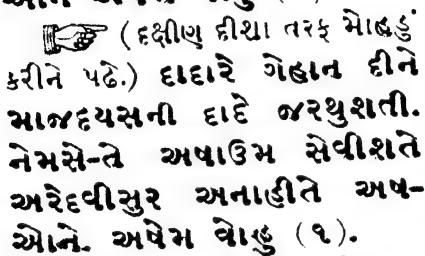 (દક્ષીણ દીશા તરફ મોહડું
કરીને પઢે.) દાદારે ગેહાન દીને
માજદયસની દાદે જરથુશતી.
નેમસે-તે અષાઉમ સેવીશતે
અરેદવીસુર અનાહીતે અષ-
ઓને. અષેમ વોહુ (૧).